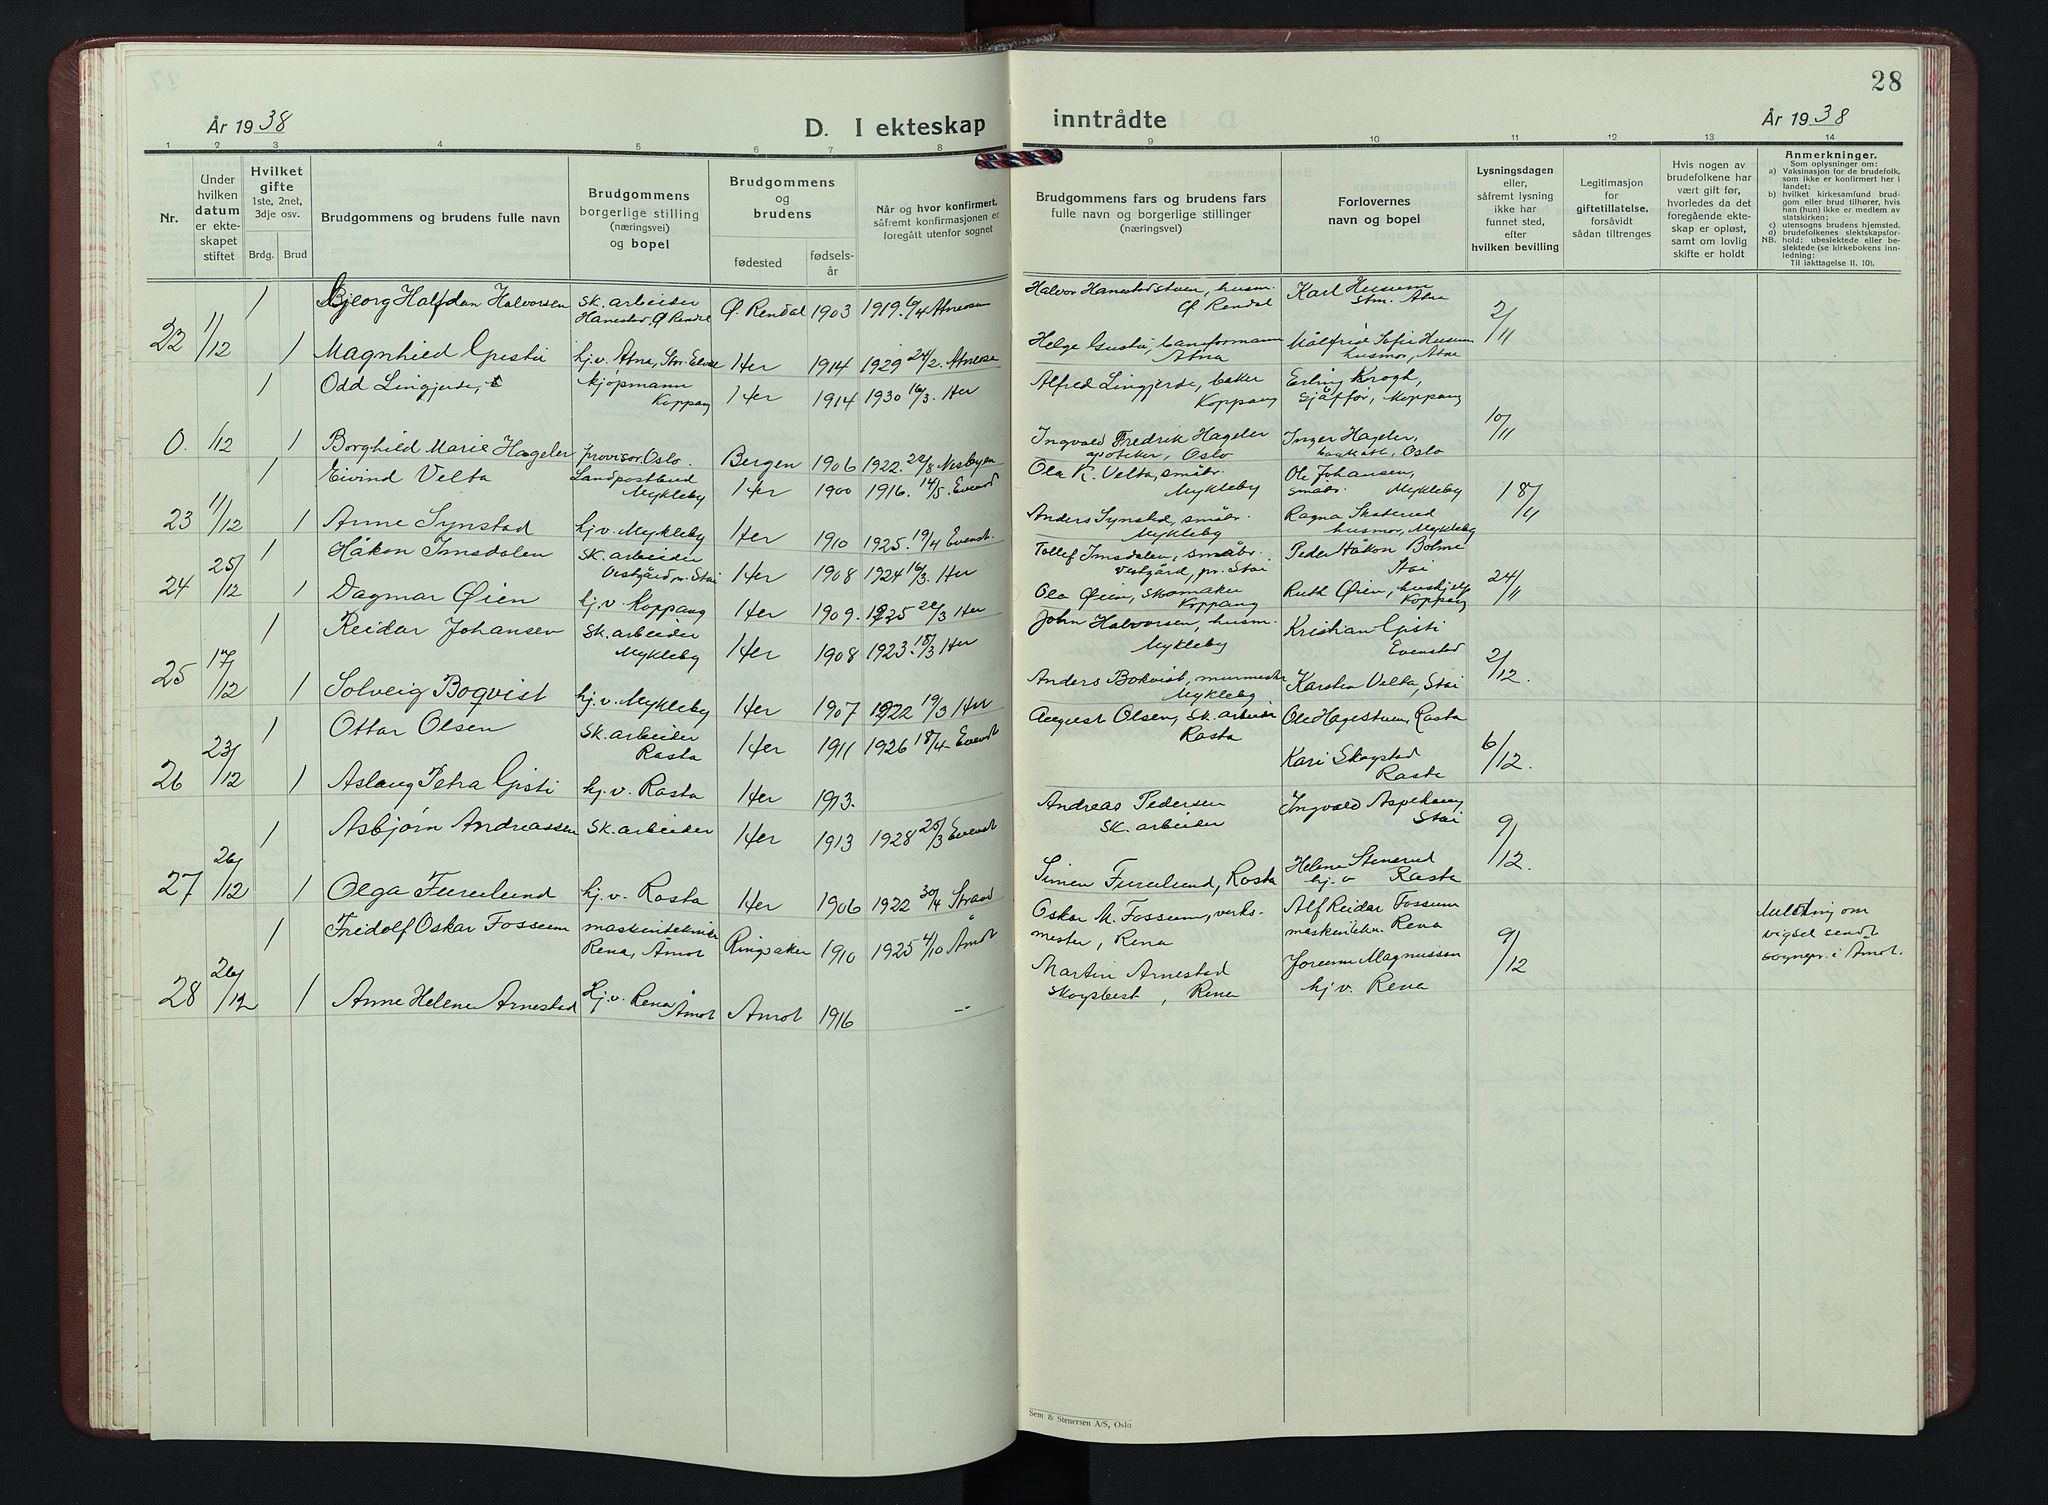 28
År 1938
D. I ekteskap inntrådte
År 1938
1 2 3 4 5 6 7 8 9 10 11 12 13 14
Nr.
Under hvilken datum er ekteskapet stiftet
Hvilket gifte 1ste, 2net, 3dje osv.
Brdg. Brud
Brudgommens og brudens fulle navn
Brudgommens borgerlige stilling (næringsvei) og bopel
Brudgommens og brudens
fødested
fødselsår
Når og hvor konfirmert, såfremt konfirmasjonen er foregått utenfor sognet
Brudgommens fars og brudens fars fulle navn og borgerlige stillinger (næringsvei)
Forlovernes navn og bopel
Lysningsdagen eller, såfremt lysning ikke har funnet sted, efter hvilken bevilling
Legitimasjon for giftetillatelse, forsåvidt sådan tiltrenges
Hvis nogen av brudefolkene har vært gift før, hvorledes da det foregående ekteskap er opløst, samt om lovlig skifte er holdt
Anmerkninger.
Som oplysninger om:
a) Vaksinasjon for de brudefolk, som ikke er konfirmert her i landet;
b) hvilket kirkesamfund brudgom eller brud tilhører, hvis han (hun) ikke er medlem av statskirken;
c) utensogns brudens hjemsted.
d) brudefolkenes slektskapsforhold: ubeslektede eller beslektede (se kirkebokens innledning:
NB. Til iakttagelse II. 10).
1 Bjeorg Halfdan Halvorsen sk. arbeider Hanestad, Ø. Rendal Ø. Rendal 1903 1919. 6/4 Atneosen Halvor Hanestadstuen, husm. Ø. Rendal Karl Husum Stm. Atna
22 11/12 1 Magnhild Gjesti hj.v. Atna, Stor Elvd. Her 1914 1929 24/2. Atneose Helge Gjesti, baneformann Atna Målfrid Sofie Husum husmor, Atna 2/11
1 Odd Lingjerde, kjøpmann Koppang Her 1914 1930 16/3. Her Alfred Lingjerde, baker Koppang Erling Krogh, sjåffør, Koppang
0. 1/12 1 Borghild Marie Hageler provisor. Oslo. Bergen 1906 1922. 22/8 Nesbyen Ingvald Fredrik Hageler apoteker, Oslo Inger Hageler, Oslo 10/11
1 Eivind Velta Landpostbud Mykleby Her 1900 1916. 14/5. Evenst Ola K. Velta, småbr. Mykleby Ole Johansen, småbr. Mykleby
23 11/12 1 Anne Synstad hj.v. Mykleby Her 1910 1925. 19/4 Evenst. Anders Synstad, småbr. Mykleby Ragna Skaterud husmor, Mykleby 18/11
1 Håkon Imsdalen sk. arbeider Vestgård, pr. Stai Her 1908 1924 16/3. Her Tollef Imsdalen, småbr. Vestgård, pr. Stai Peder Håkon Bolme Stai
24 25/12 1 Dagmar Øien hj.v. Koppang Her 1909. 1925 22/3 Her Ola Øien, skomaker Koppang Ruth Øien, hushjelp Koppang 24/11
1 Reidar Johansen sk. arbeider Mykleby Her 1908 1923. 18/3 Her John Halvorsen, husm. Mykleby Kristian Gjesti Evenstad
25 17/12 1 Solveig Boqvist hj.v. Mykleby Her 1907 1922 19/3 Her Anders Bokvist, murmester Mykleby Karsten Velta, Stai 2/12.
1 Ottar Olsen sk. arbeider Rasta Her 1911 1926 18/4. Evenst August Olsen, sk. arbeider Rasta Ole Hagestuen, Rasta
26 23/12 1 Aslaug Petra Gjesti hj.v. Rasta Her 1913. Kari Skogstad Rasta 6/12.
1 Asbjørn Andreassen sk. arbeider Her 1913 1928 25/3 Evenst Andreas Pedersen sk. arbeider Ingvald Aspehaug Stai
27 26/12 1 Olga Furulund hj.v. Rasta Her 1906 1922 30/4 Strand Simen Furulund, Rasta Helene Stenerud hj.v Rasta 9/12.
1 Fridolf Oskar Fossum maskintekniker Rena, Åmot Ringsaker 1910 1925 4/10 Åmot Oskar M. Fossum, verksmester, Rena Alf Reidar Fossum maskintekn. Rena Melding om vigsel sendt sognepr. i Åmot.
28 26/12 1 Anne Helene Arnestad Hj.v. Rena Åmot Åmot 1916 -"- Martin Arnestad skogsbest, Rena Jorunn Magnussen hj.v. Rena 9/12
Sem & Stenersen A/S, Oslo